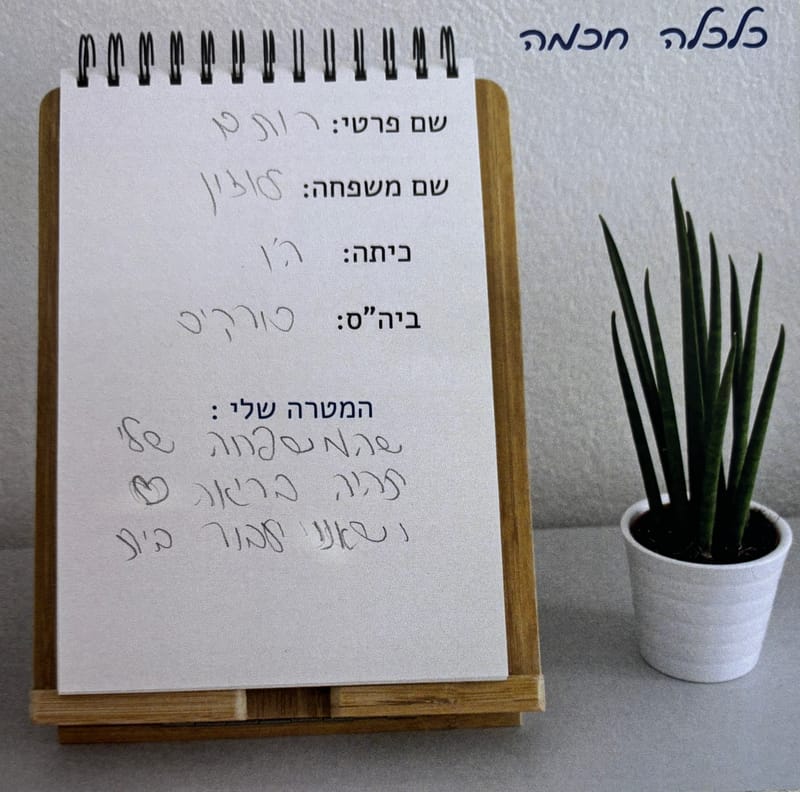 כלכלה חכמה
שם פרטי: רותם
שם משפחה:
כיתה: ה'ו
ביה"ס: פורקיס
המטרה שלי :
שהמשפחה שלי
תהיה בריאה ♡
ושאני יעבור בית